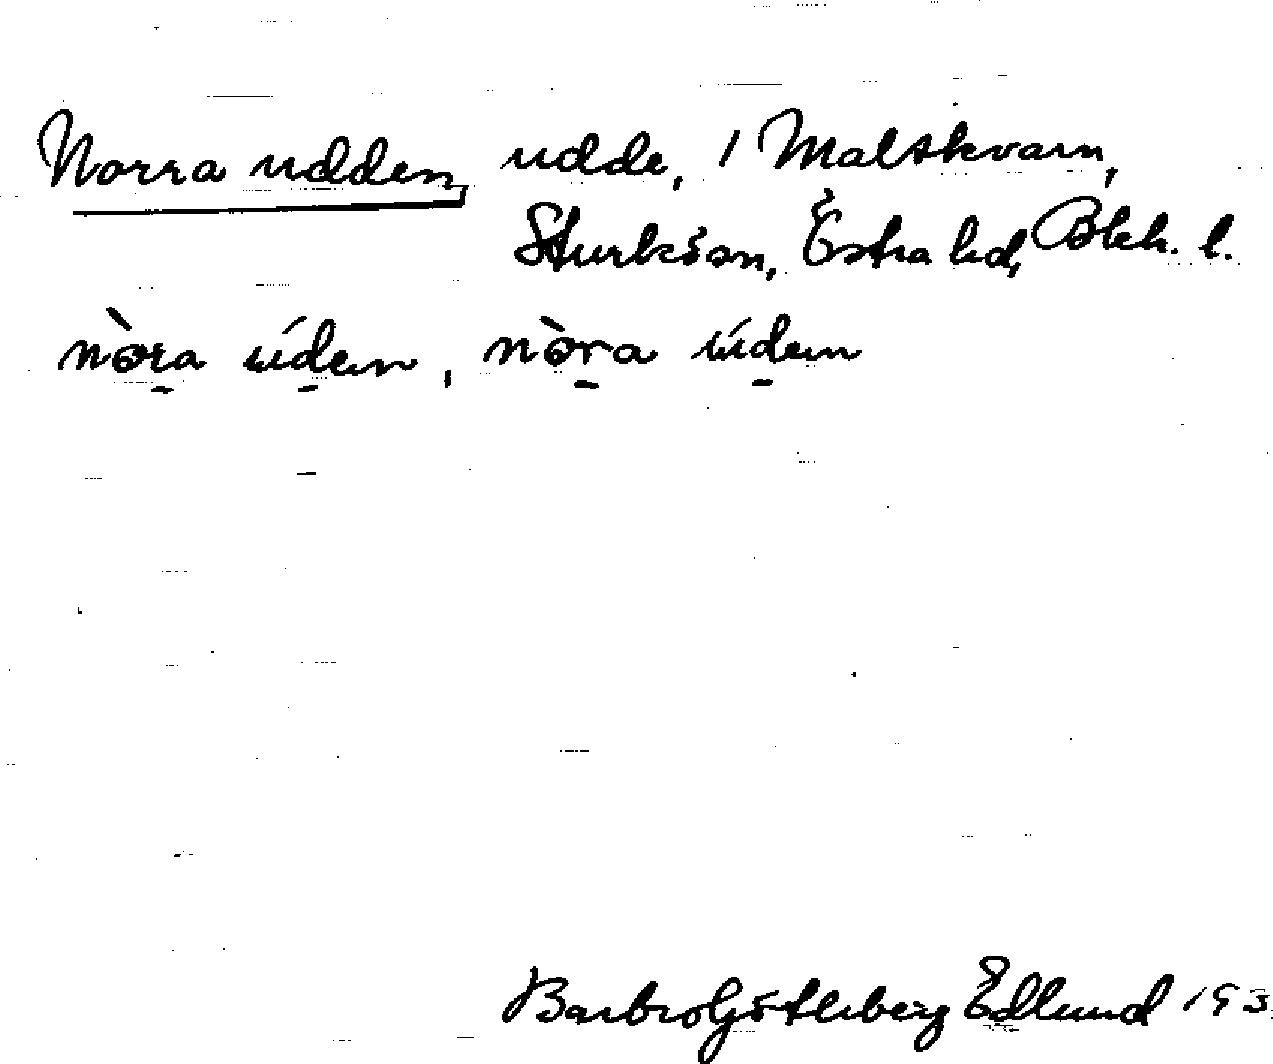 Norra udden, udde, / Maltkvarn,
Sturkö sn, Östra hd, Blek. l.
nòra úden, nòra úden
Barbro Götleberg Edlund 193